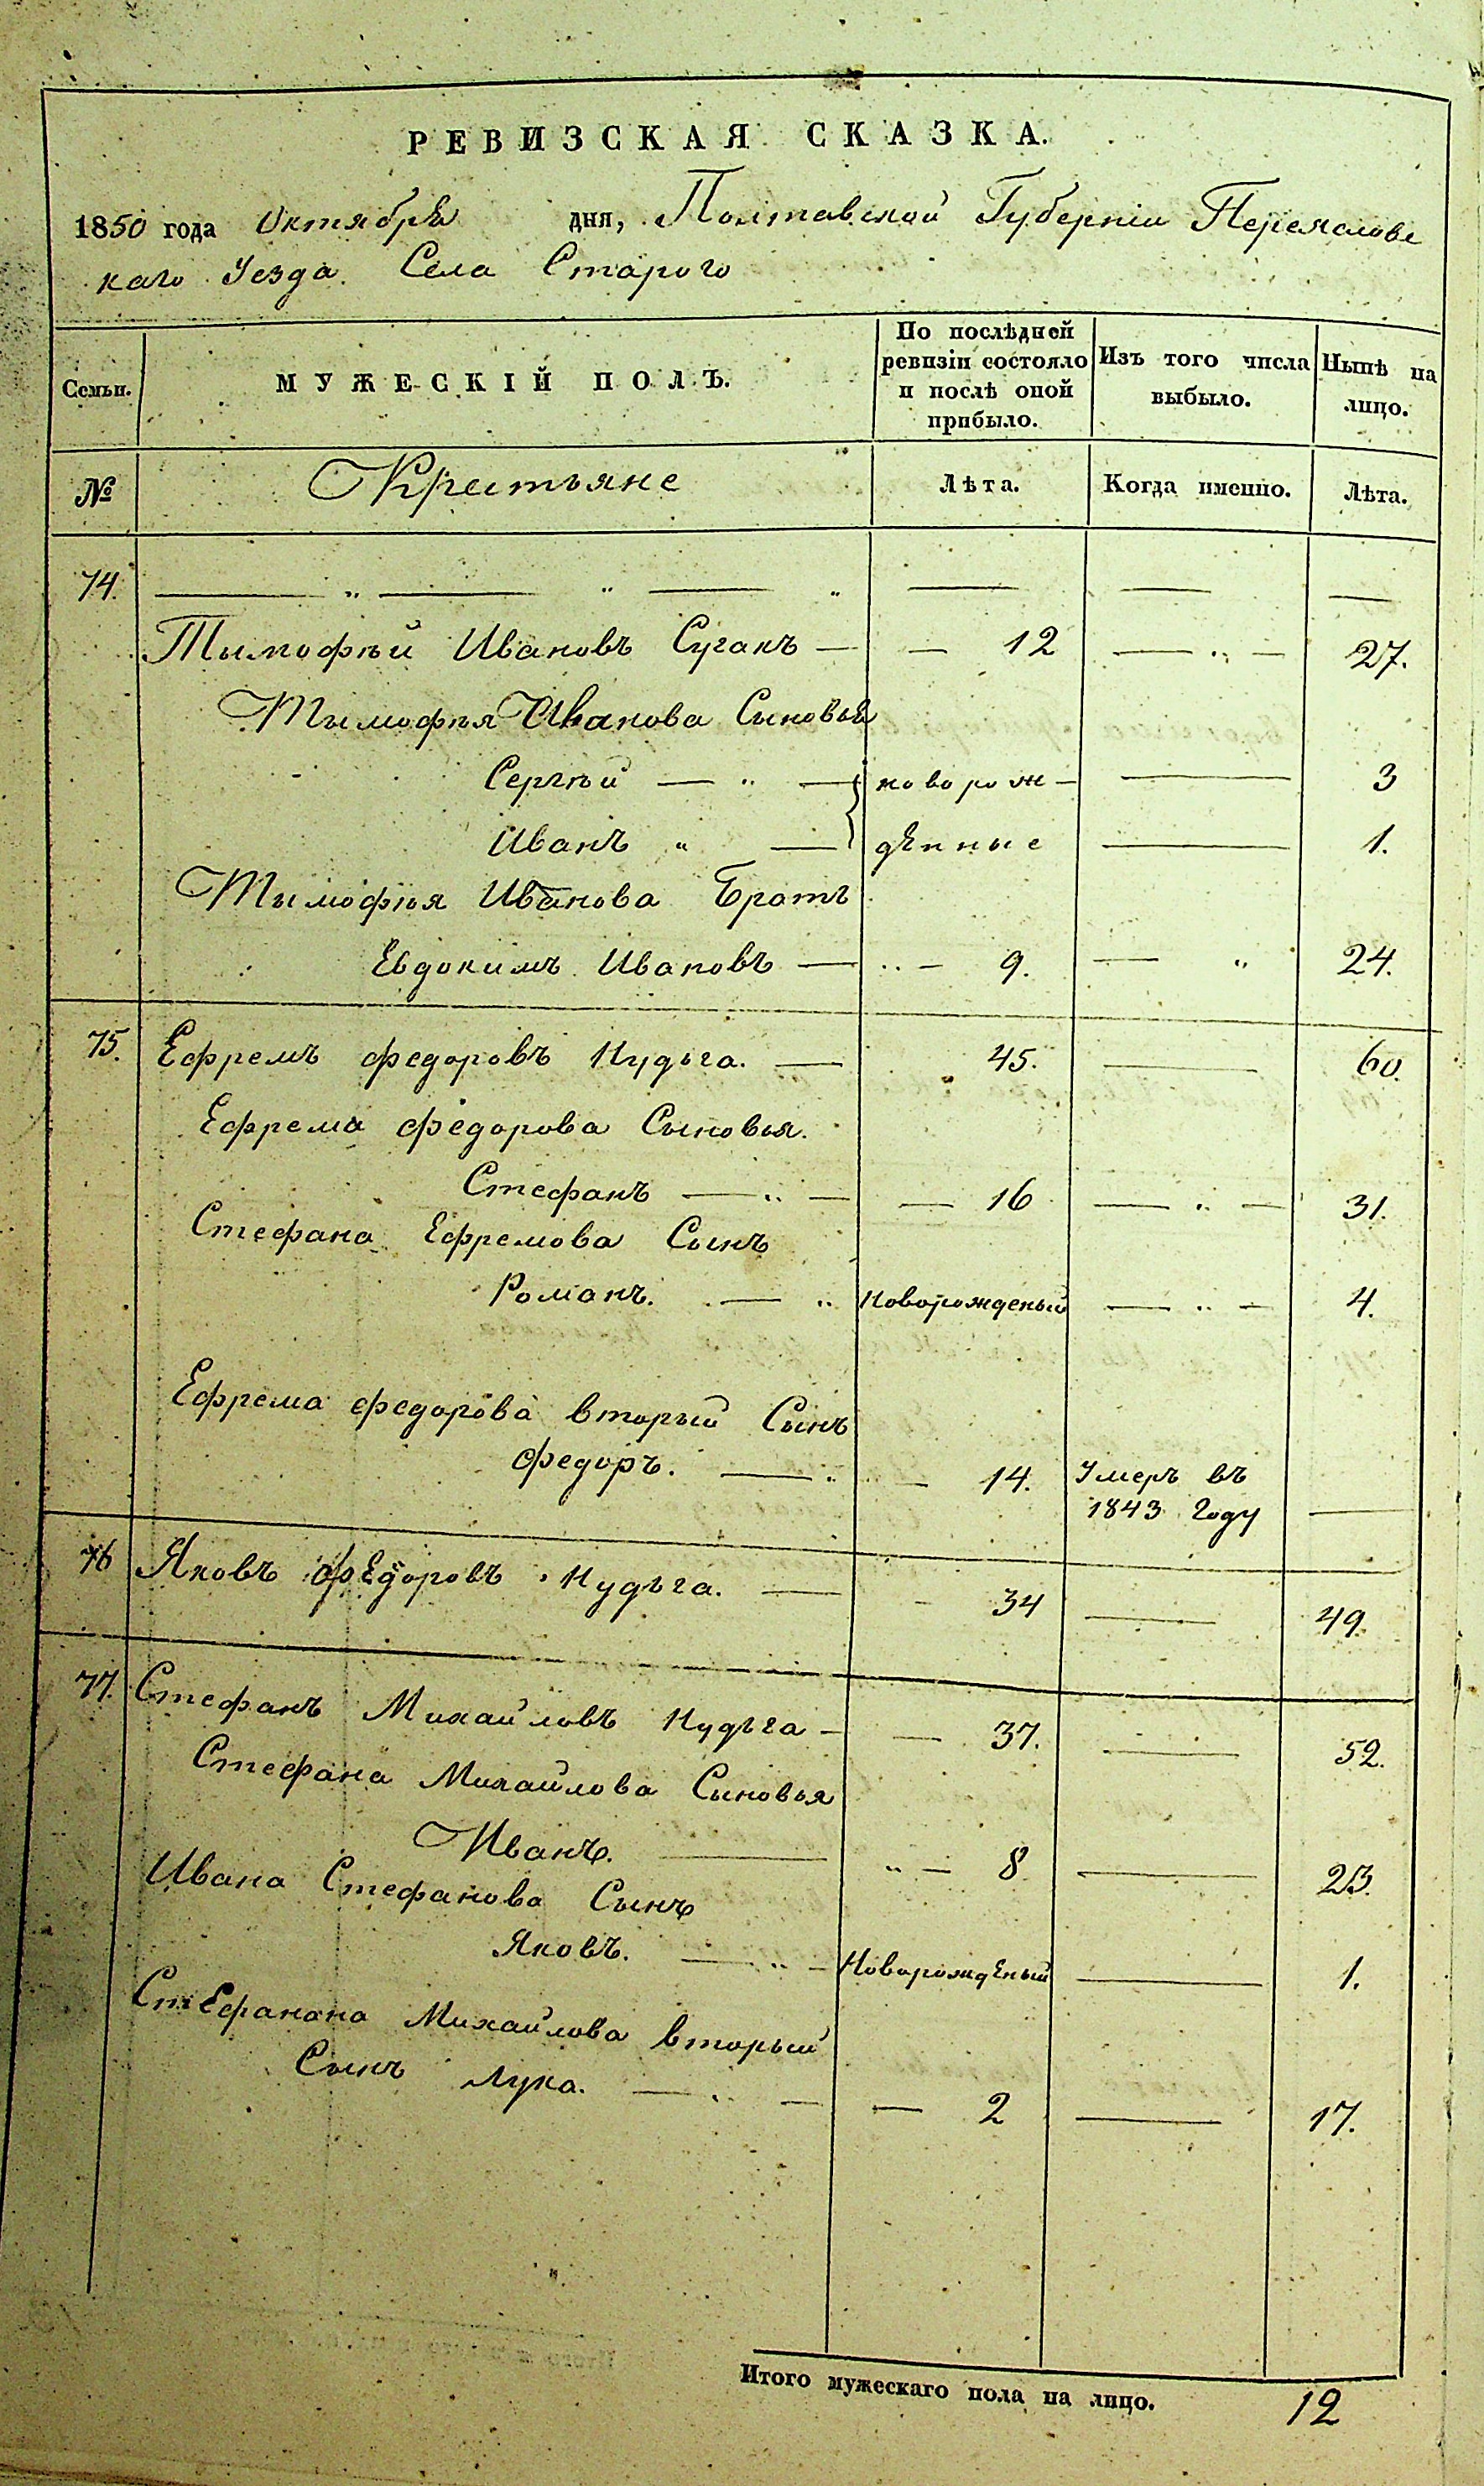 РЕВИЗСКАЯ СКАЗКА.
1850 года Октября дня, Полтавской Губерніи Переяславс
каго Уезда Села Старого
Семьи. МУЖЕСКІЙ ПОЛЪ. По послѣдней ревизіи состояло и послѣ оной прибыло. Изъ того числа выбыло. Нынѣ на лицо.
№ Крестьяне Лѣта. Когда именно. Лѣта.
74. — „ — „ — „ — — —
Тымофѣй Ивановъ Суганъ — — 12 — „ — 27.
Тымофѣя Иванова Сыновья
Сергѣй — „ — новорож- — 3
Иванъ „ — денные — 1.
Тымофѣя Иванова Братъ
Евдокимъ Ивановъ — „ — 9. — „ 24.
75. Ефремъ Федоровъ Кудьга. — 45. — 60.
Ефрема Федорова Сыновья.
Стефанъ — „ — — 16 — „ — 31.
Стефана Ефремова Сынъ
Романъ. — „ Новорожденый — „ — 4.
Ефрема Федорова вторый Сынъ
Федоръ. — „ — 14. Умеръ въ
1843 Году —
76 Яковъ Федоровъ Кудьга. — — 34 — 49.
77. Стефанъ Михайловъ Кудьга — — 37. — 52.
Стефана Михайлова Сыновья
Иванъ. — „ — 8 — 23.
Ивана Стефанова Сынъ
Яковъ. — „ — Новорожденый — 1.
Стефанана Михайлова вторый
Сынъ Лука. — „ — — 2 — 17.
Итого мужескаго пола на лицо. 12